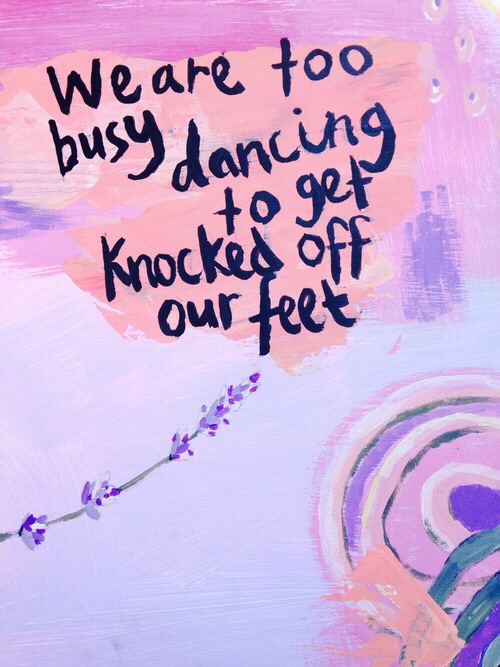 We are too
busy dancing
to get
Knocked off
our feet